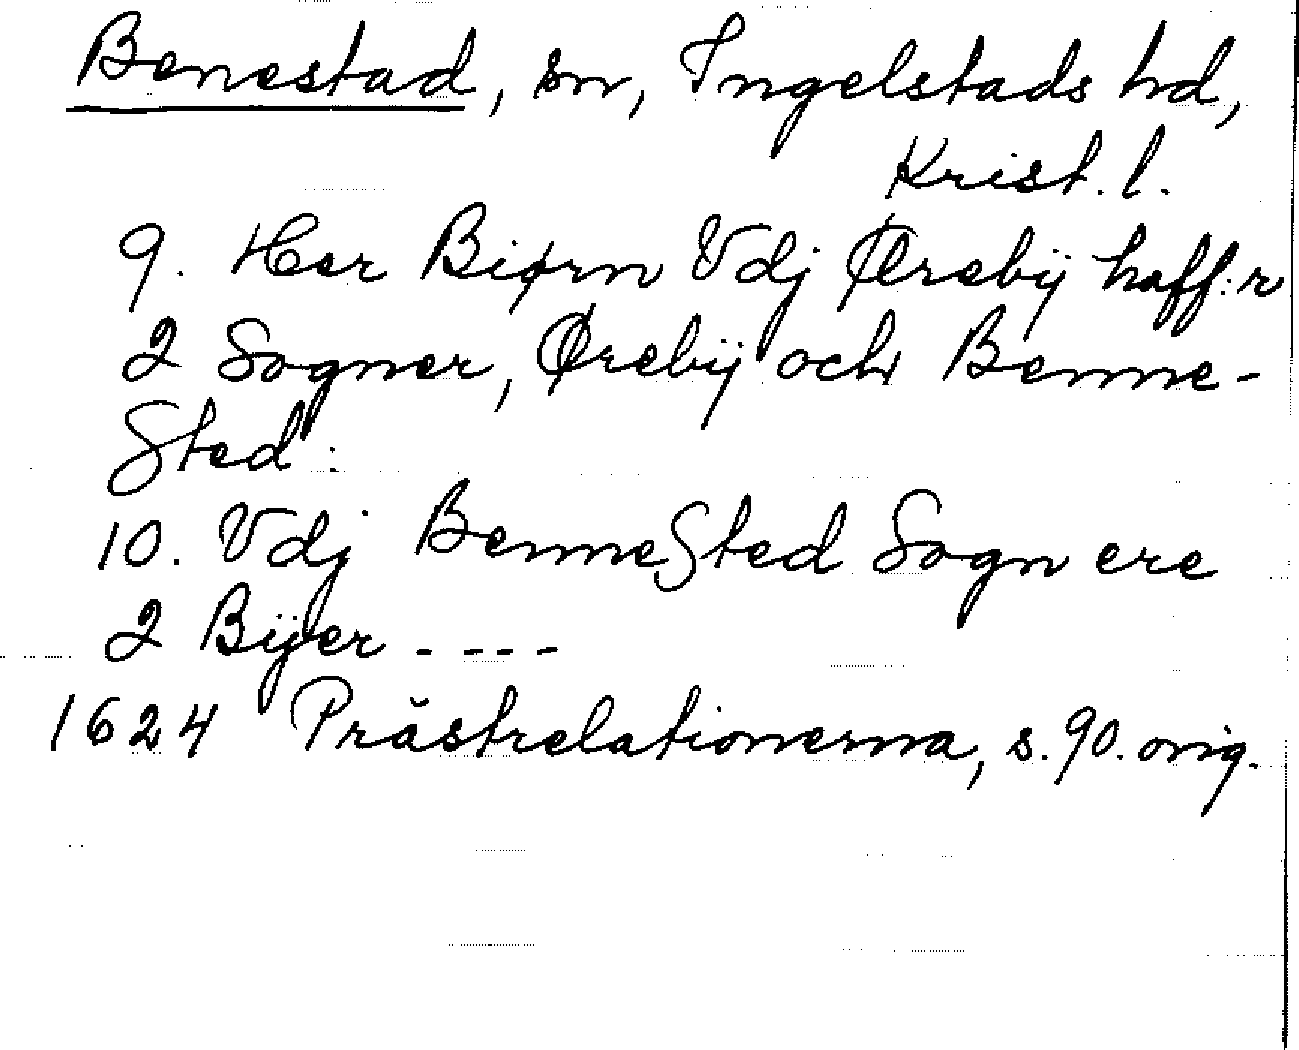 Benestad, sn, Ingelstads hd,
Krist. l.
9. Her Biørn Vdj Ørebÿ haff:r
2 Sogner, Ørebÿ och Benne-
Sted:
10. Vdj BenneSted Sogn ere
2 Bÿer - - - -
1624 Prästrelationerna, s. 90. orig.